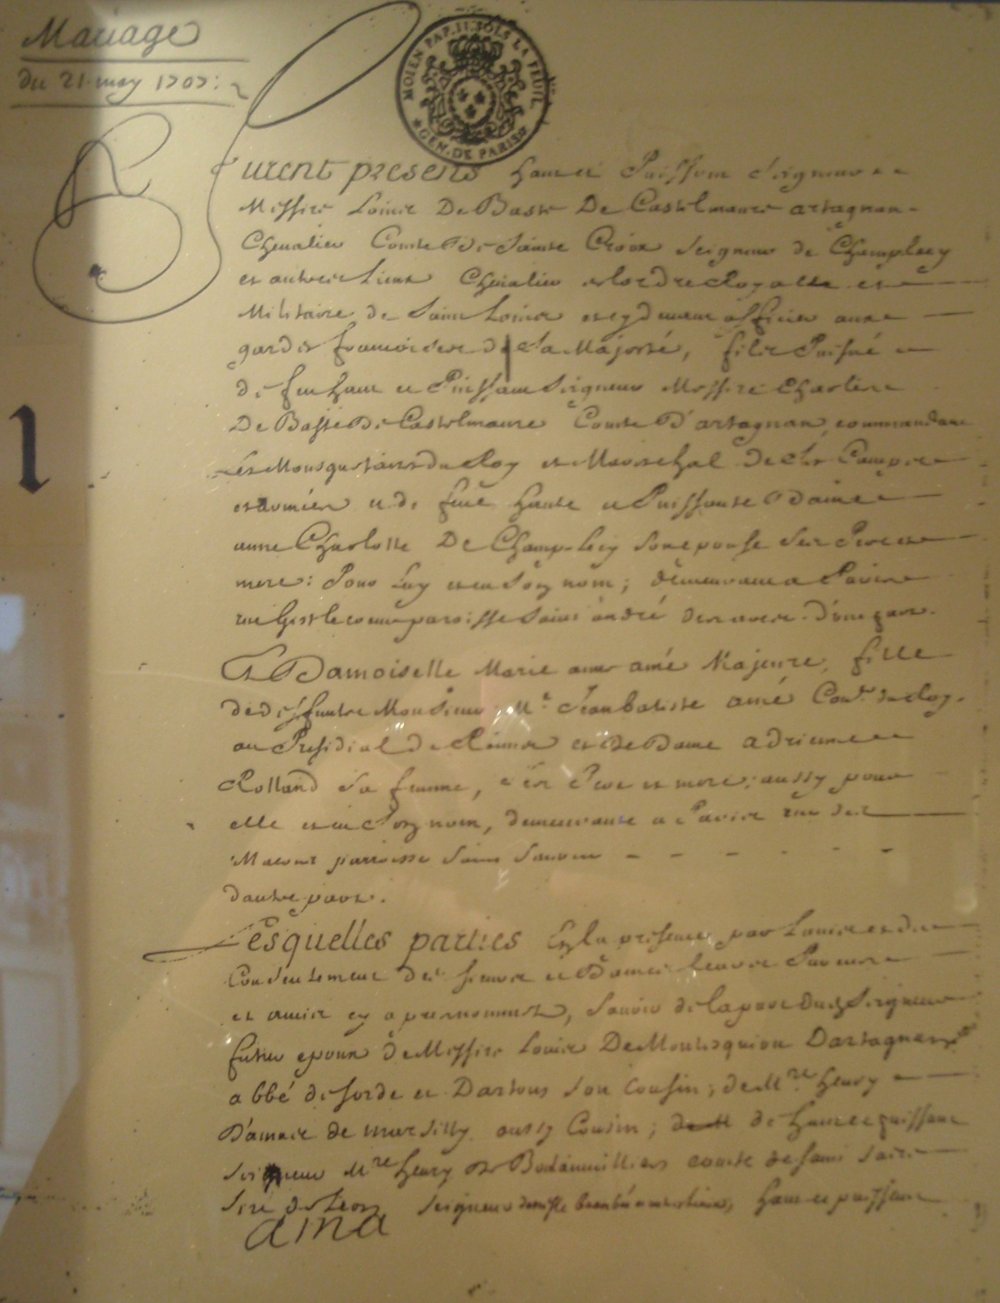 Mariage
du 21 may 1707:
MOIEN PAP. II. SOLS LA FEUIL
GEN. DE PARIS
Furent presens haut et Puissant Seigneur
Messire Louis De Batz De Castelmaure artagnan
Chevalier Comte De Sainte Croix Seigneur de Champlecy
et autres Lieux Chevalier de lordre Royal et
Militaire de Saint Louis et officier aux
gardes francoises de Sa Majesté, fils Puisné
de feu haut et Puissant Seigneur Messire Charles
De Batz De Castelmaure Comte D'artagnan, commandant
les Mousquetaires du Roy et Mareschal de Ses Camps
et armées et de feue haute et Puissante Dame
anne Charlotte De Champlecy son epouse Ses Pere et
mere: Pour Luy et en Son nom; demeurant a Paris
rue Gist le coeur paroisse Saint andré des arcs D'une part.
Et Damoiselle Marie anne amé Majeure, fille
de deffunt Monsieur Me Jean batiste amé Coner du Roy
au Presidial de Reims et de Dame adrienne
Rolland Sa femme, Ses Pere et mere; aussy pour
elle et en Son nom, demeurante a Paris rue des
parroisse Saint Sauveur
dautre part.
Lesquelles parties En la presence par Lavis et du
Consentement des sieurs et Dames leurs Parens
et amis cy apres nommez, Scavoir de la part dud. Seigneur
futur epoux de Messire Louis De Montesquiou Dartagnan
abbé de Sorde et Dartous Son Cousin; de Mre henry
Damas de marsilly aussy Cousin; de haut et puissant
Seigneur Mre henry de Boulainvilliers comte de Saint Saire
Seigneur haut et puissant
1